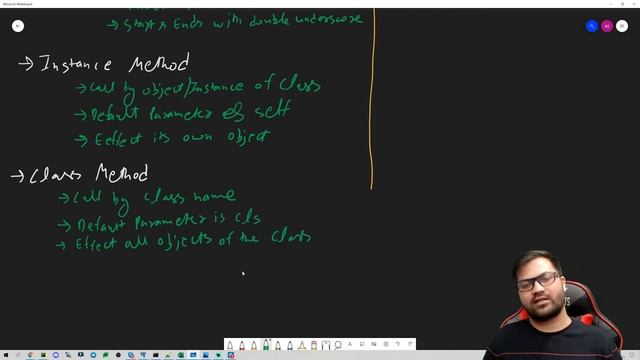 Microsoft Whiteboard
→ Starts Ends with double underscore
→ Instance Method
→ Call by object/Instance of Class
→ Default Parameter is self
→ Eeffect its own object
→ Class Method
→ Call by Class name
→ Default Parameter is Cls
→ Effect all objects of the Class